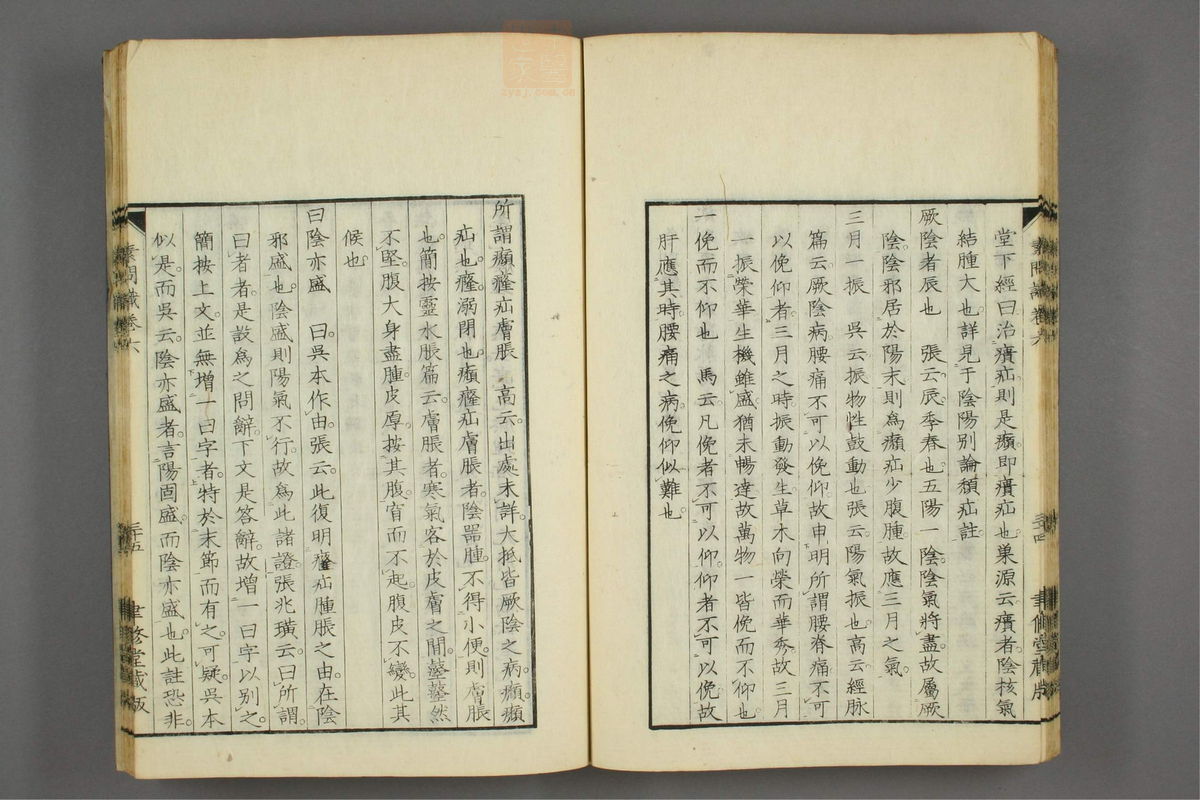 堂下經曰治㿉疝則是癩即㿉疝也巢源云㿉者陰核氣
結腫大也詳見于陰陽別論㿗疝註
厥陰者辰也　張云辰季春也五陽一陰陰氣將盡故屬厥
陰陰邪居於陽末則為癩疝少腹腫故應三月之氣
三月一振　吳云振物性鼓動也張云陽氣振也高云經脉
篇云厥陰病腰痛不可以俛仰故申明所謂腰脊痛不可
以俛仰者三月之時振動發生草木向榮而華秀故三月
一振榮華生機雖盛猶未暢達故萬物一皆俛而不仰也
一俛而不仰也　馬云凡俛者不可以仰仰者不可以俛故
肝應其時腰痛之病俛仰似難也
素問識卷六
三十四
聿修堂藏版
所謂癩癃疝膚脹　高云出處未詳大抵皆厥陰之病癩癩
疝也癃溺閉也癩癃疝膚脹者陰器腫不得小便則膚脹
也簡按靈水脹篇云膚脹者寒氣客於皮膚之間𪔣𪔣然
不堅腹大身盡腫皮厚按其腹窅而不起腹皮不變此其
候也
曰陰亦盛　曰吳本作由張云此復明癃疝腫脹之由在陰
邪盛也陰盛則陽氣不行故為此諸證張兆璜云曰所謂
曰者者是設為之問辭下文是答辭故增一曰字以別之
簡按上文並無增一曰字者特於末節而有之可疑吳本
似是而吳云陰亦盛者言陽固盛而陰亦盛也此註恐非
素問識卷六
三十五
聿修堂藏版
zysj.com.cn